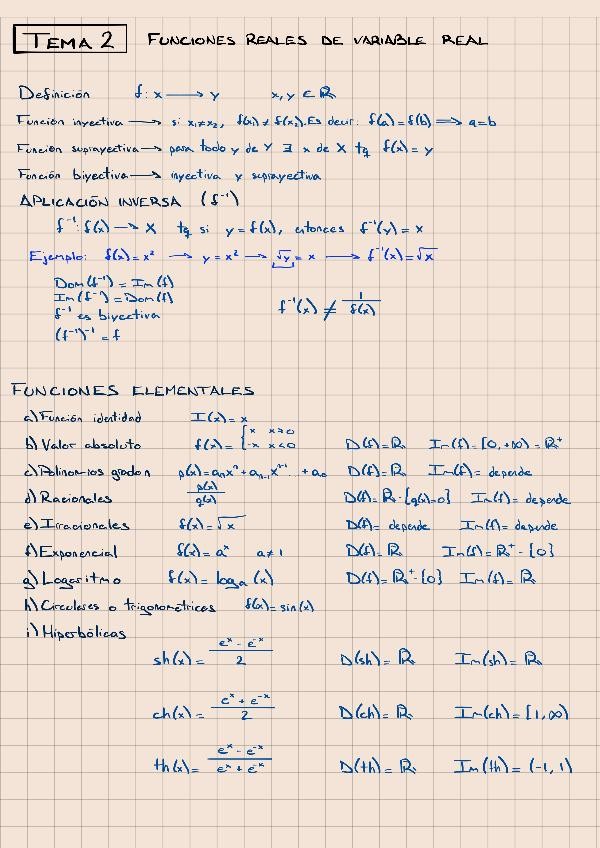 TEMA 2 FUNCIONES REALES DE VARIABLE REAL
Definición f: x ⟶ y x, y ⊂ ℝ
Función inyectiva ⟶ si x₁≠x₂, f(x₁) ≠ f(x₂). Es decir: f(a)=f(b) ⟹ a=b
Función suprayectiva ⟶ para todo y de Y ∃ x de X tq f(x) = y
Función biyectiva ⟶ inyectiva y suprayectiva
APLICACIÓN INVERSA (f⁻¹)
f⁻¹: f(x) ⟶ X tq si y = f(x), entonces f⁻¹(y) = x
Ejemplo: f(x) = x² ⟶ y = x² ⟶ √y = x ⟶ f⁻¹(x) = √x
Dom(f⁻¹) = Im(f)
Im(f⁻¹) = Dom(f)
f⁻¹ es biyectiva
f⁻¹(x) ≠ 1/f(x)
(f⁻¹)⁻¹ = f
FUNCIONES ELEMENTALES
a) Función identidad I(x) = x
b) Valor absoluto f(x) = { x x≥0 -x x<0 D(f) = ℝ Im(f) = [0, +∞) = ℝ⁺
c) Polinomios grado n p(x) = aₙxⁿ + aₙ₋₁xⁿ⁻¹ ... + a₀ D(f) = ℝ Im(f) = depende
d) Racionales p(x)/q(x) D(f) = ℝ - {q(x)=0} Im(f) = depende
e) Irracionales f(x) = √x D(f) = depende Im(f) = depende
f) Exponencial f(x) = aˣ a ≠ 1 D(f) = ℝ Im(f) = ℝ⁺ - {0}
g) Logaritmo f(x) = logₐ(x) D(f) = ℝ⁺ - {0} Im(f) = ℝ
h) Circulares o trigonométricas f(x) = sin(x)
i) Hiperbólicas
sh(x) = (eˣ - e⁻ˣ)/2 D(sh) = ℝ Im(sh) = ℝ
ch(x) = (eˣ + e⁻ˣ)/2 D(ch) = ℝ Im(ch) = [1, ∞)
th(x) = (eˣ - e⁻ˣ)/(eˣ + e⁻ˣ) D(th) = ℝ Im(th) = (-1, 1)